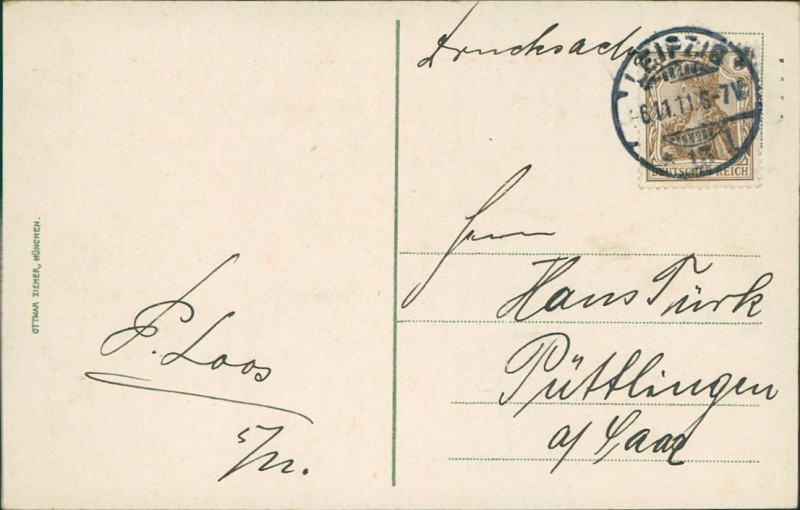 Drucksache
LEIPZIG
6.11.11.6-7V.
13
DEUTSCHES REICH
Herrn
Hans Türk
Püttlingen
a/ Saar
P. Loos
5/11.
OTTMAR ZIEHER, MÜNCHEN.